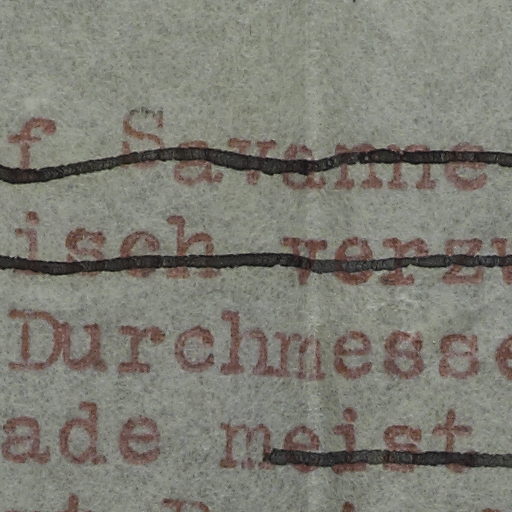 f Savanne
isch verzw
Durchmesse
ade meist